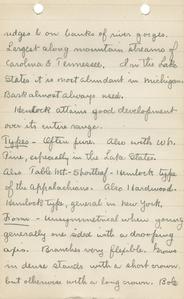 ridges & on banks of river gorges.
Largest along mountain streams of
Carolina & Tennessee. In the Lake
States it is most abundant in Michigan.
Bark almost always used.
Hemlock attains good development
over its entire range.
Types - Often pure. Also with Wh.
Pine, especially in the Lake States.
Also Table Mt - Shortleaf - Hemlock type
of the Appalachians. Also Hardwood.
Hemlock type, general in New York.
Form - Unsymmetrical when young
generally one sided with a drooping
apex. Branches very flexible. Grows
in dense stands with a short crown
but otherwise with a long crown. Bole